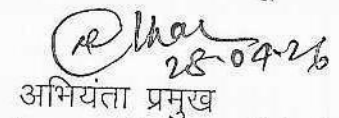 28-04-26
अभियंता प्रमुख